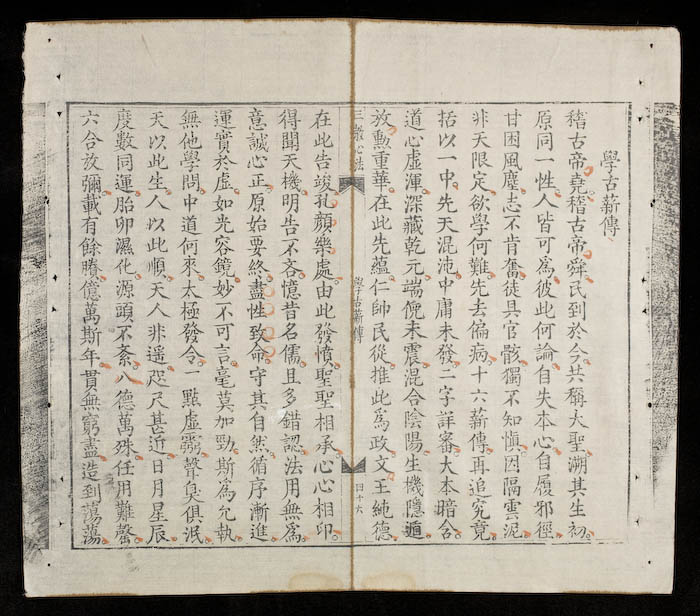 學古薪傳
稽古帝堯稽古帝舜民到於今共稱大聖溯其生初
原同一性人皆可爲彼此何論自失本心自履邪徑
甘困風塵志不肯奮徒具官骸獨不知愼因隔雲泥
非天限定欲學何難先去偏病十六薪傳再追究竟
括以一中先天混沌中庸未發二字詳審大本暗合
道心虛渾深藏乾元端倪未震混合陰陽生機隱遁
放勲重華在此先蘊仁帥民從推此爲政文王純德
三教心法
學古薪傳
四十六
在此告竣孔顏樂處由此發憤聖聖相承心心相印
得聞天機明告不吝憶昔名儒且多錯認法用無爲
意誠心正原始要終盡性致命守其自然循序漸進
運實於虛如光容鏡妙不可言毫莫加勁斯爲允執
無他學問中道何來太極發令一點虛靈聲臭俱泯
天以此生人以此順天人非遥咫尺甚近日月星辰
度數同運胎卵濕化源頭不紊八德萬殊任用難罄
六合放彌載有餘賸億萬斯年貫無窮盡造到蕩蕩